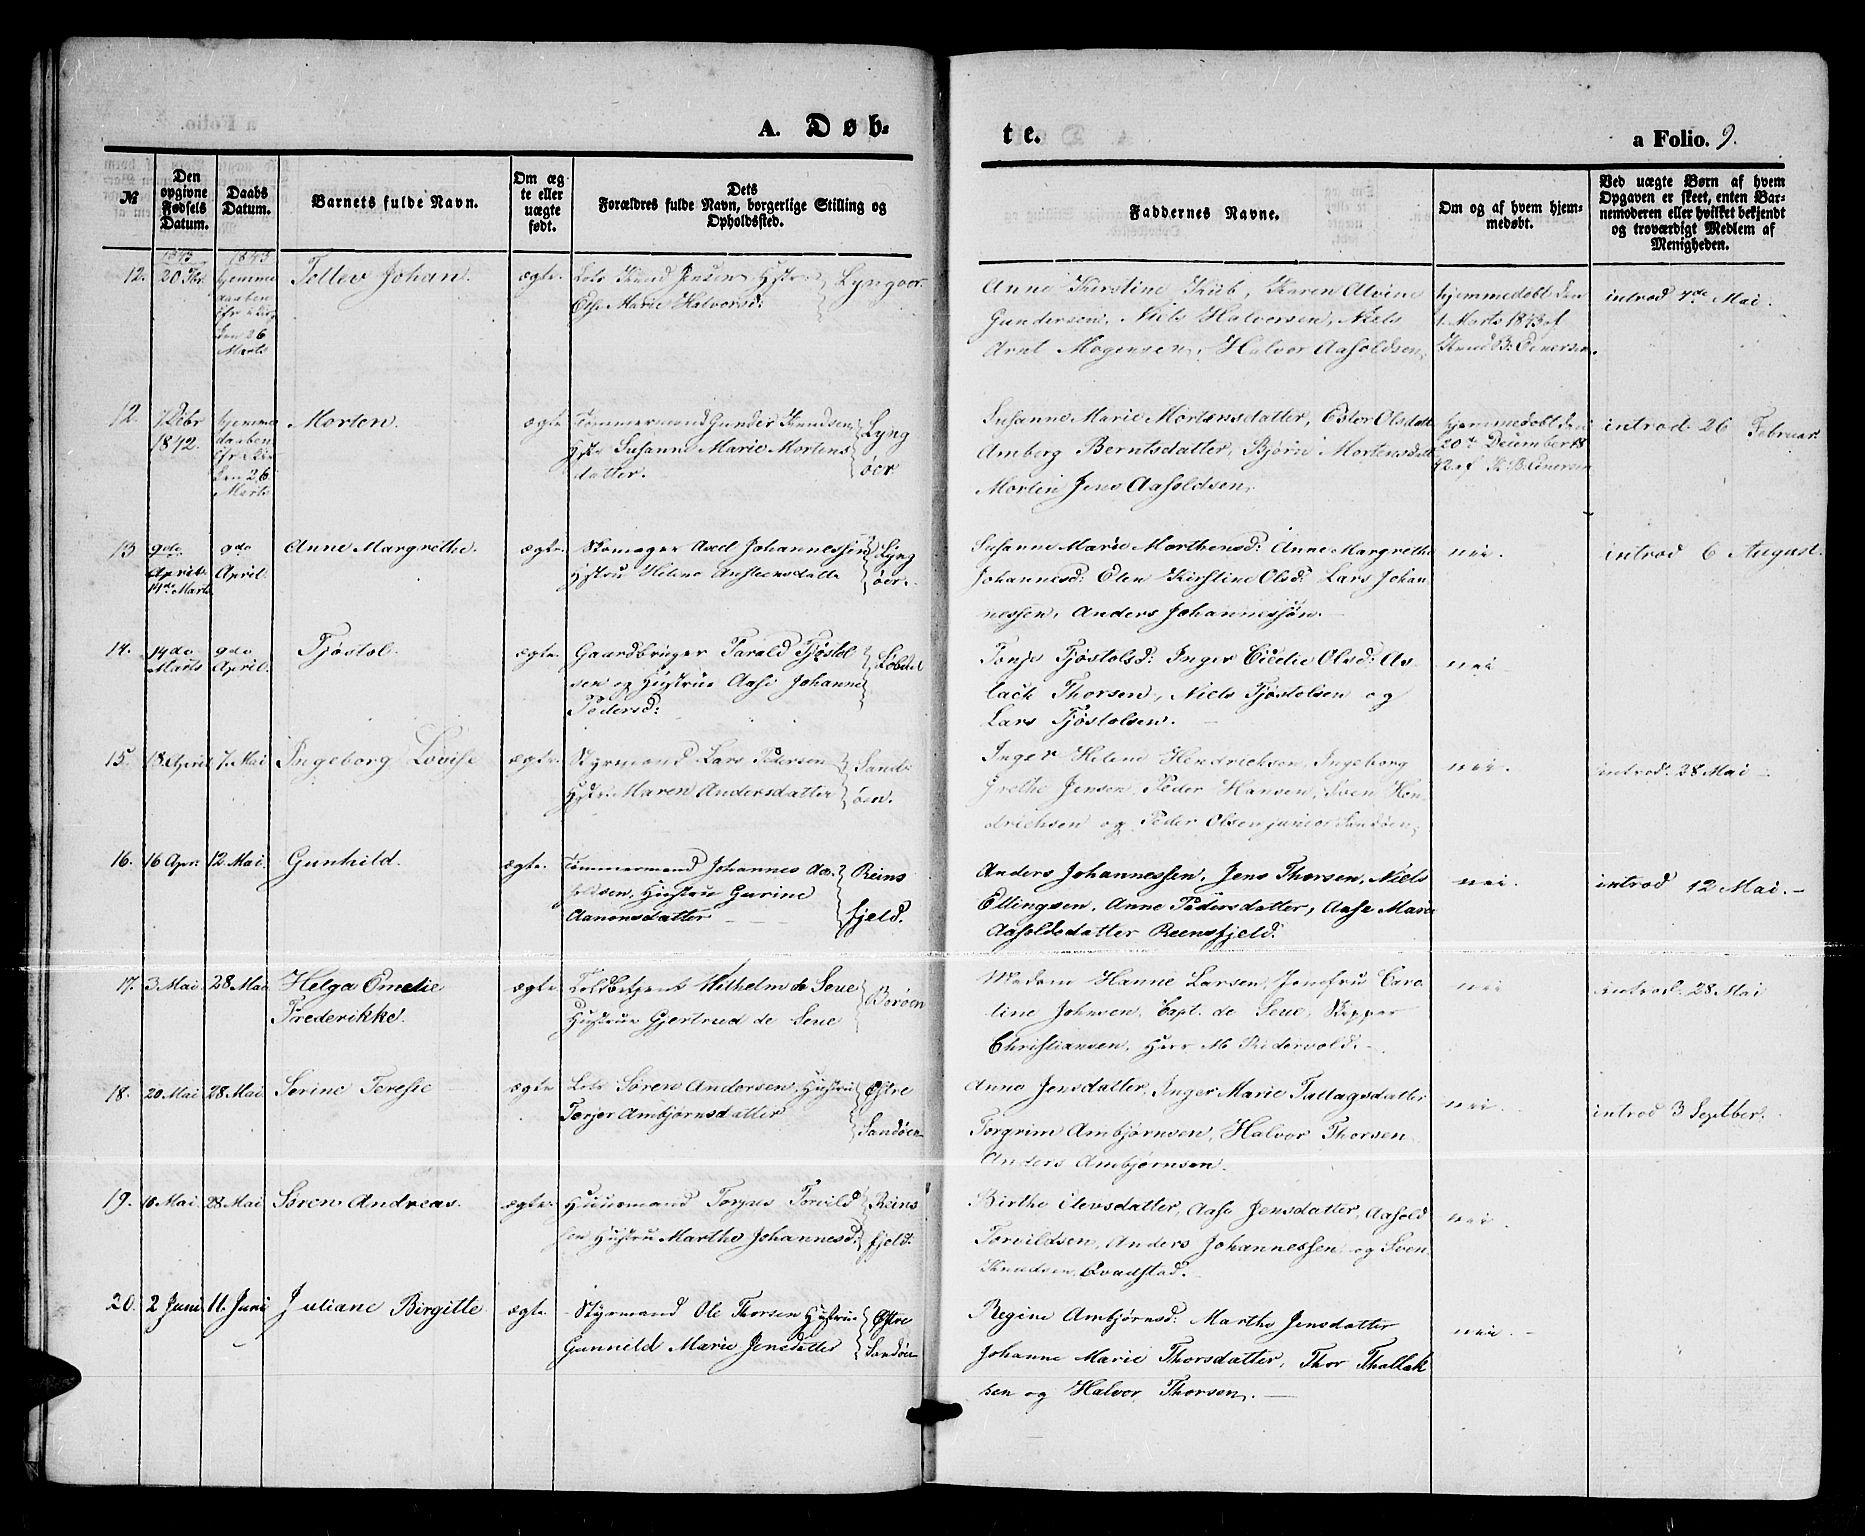 A. Døb-
te.
a Folio. 9.
№
Den opgivne Fødsels Datum.
Daabs Datum.
Barnets fulde Navn.
Om ægte eller uægte født.
Dets Forældres fulde Navn, borgerlige Stilling og Opholdssted.
Faddernes Navne.
Om og af hvem hjemmedøbt.
Ved uægte Børn af hvem Opgaven er skeet, enten Barnemoderen eller hvilket bekjendt og troværdigt Medlem af Menigheden.
1843 1843
12. 20 Fbr. hjemme daaben den 26 Marts
Tellev Johan.
ægte.
Lods Knud Jensen Hstr.
Else Marie Halvorsd:
Lyngoer
Anne Kirstine Kub, Karen Alvine
Gundersen, Niels Halvorsen, Niels
Arnt Mogensen, Halvor Aasoldsen,
hjemmedøbt den
1 Marts 1843 af
Knud B: Einersen.
introd 7de Mai.
12. 7 Dcbr 1842. hjemme daaben den 26 Marts
Morten.
ægte
Tømmermand Gunder Knudsen
Hstr Susanne Marie Mortens
datter.
Lyng
øer
Susanne Marie Mortensdatter, Ester Olsdatt
Amberg Berntsdatter, Bjørn Mortensdatt
Morten Jens Aasoldsen,
hjemmedøbt den
20de December 18
42 af K. B. Einersen
introd 26 Februar.
13 9de April 14de Marts
9de April.
Anne Margrethe.
ægte.
Skomager Axel Johannessøn
Hstru Helene Ansteensdatte
Lyng
øer.
Susanne Marie Morthensd: Anne Margrethe
Johannesd: Elen Kirstine Olsd: Lars Johan
nessen, Anders Johannessøn.
nei.
introd 6 August.
14. 14de Marts
9de April.
Tjøstol.
ægte.
Gaardbruger Tarald Tjøstol
sen og Hustrue Aase Johanne
Pedersd:
Tonje Tjøstolsd: Inger Cicelie Olsd: As-
lack Thorsen, Niels Tjøstolsen og
Lars Tjøstolsen.
nei
15. 18 April 7. Mai
Ingeborg Lovise
ægte.
Styrmand Lars Pedersen
Hstr. Maren Andersdatter
Sand-
øen.
Inger Helene Hendrichsen, Ingeborg
Grethe Jensen, Peder Hansen, Sven Hen-
drichsen og Peder Olsen junior Sandøen,
nei.
introd. 28 Mai
16. 16 Apri 12. Mai.
Gunhild.
ægte.
Tømmermand Johannes Aa-
soldsen, Hustru Gurine
Aanonsdatter
Reins
fjeld.
Anders Johannessen, Jens Thorsen, Niels
Ellingsen, Anne Pedersdatter, Aase Marie
Aasoldsdatter Reensfjeld.
nei.
introd 12 Mai.
17. 3 Mai 28 Mai
Helga Emelie
Frederikke.
ægte
Toldbetjent Wilhelm de Seue
Hustrue Gjertrud de Seue
Borøen
Madam Hanne Larsen, Jomfru Caro
line Johnsen, Capt. de Seue, Skipper
Christiansen, Herr M. Riddervold.
nei
introd. 28 Mai
18. 20 Mai 28 Mai.
Sørine Teresie
ægte
Lods Søren Andersen, Hustru
Torjer Ambjørnsdatter
Østre
Sandøen
Anne Jensdatter, Inger Marie Tallagsdatter
Torgrim Ambjørnsen, Halvor Thorsen
Anders Ambjørnsen.
nei.
introd 3 Septber.
19. 16 Mai. 28 Mai
Søren Andreas.
ægte.
Huusmand Torjus Torvild
sen Hustru Marthe Johannesd:
Reins
fjeld.
Birthe Elevsdatter, Aase Jensdatter, Aasold
Torvildsen, Anders Johannessen og Sven
Knudsen, Qvadstad.
nei.
20. 2 Juni 11. Juni
Juliane Birgitte
ægte.
Styrmand Ole Thorsen Hustrue
Gunnild Marie Jensdatter
Østre
Sandøen
Regine Ambjørnsd: Marthe Jensdatter
Johanne Marie Thorsdatter, Thor Thallak
sen og Halvor Thorsen.
nei.